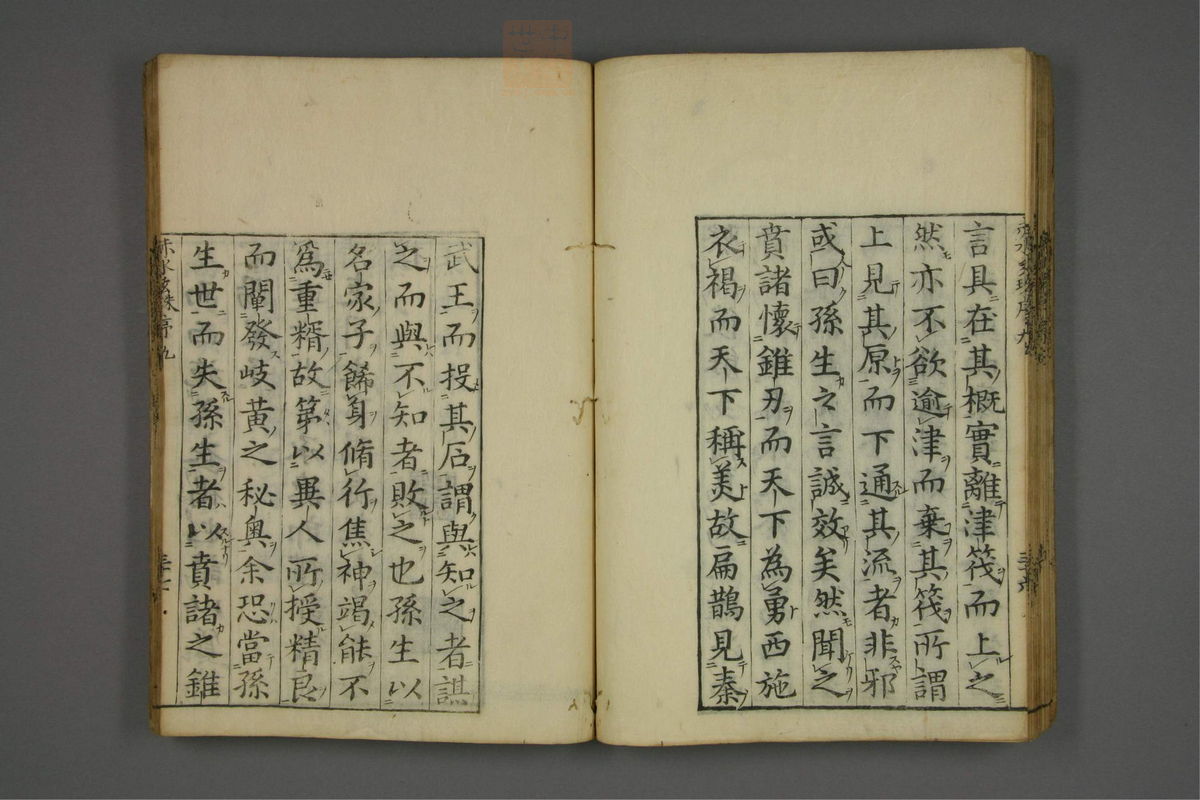 言具在其概實離津筏而上之
然亦不欲逾津而棄其筏所謂
上見其原而下通其流者非邪
或曰孫生之言誠效矣然聞之
賁諸懷錐刃而天下為勇西施
衣褐而天下稱美故扁鵲見秦
武王而投其石謂與知之者謀
之而與不知者敗之也孫生以
名家子餙身脩行焦神竭能不
為重糈故第以異人所授精良
而闡發岐黃之秘奥余恐當孫
生世而失孫生者以賁諸之錐